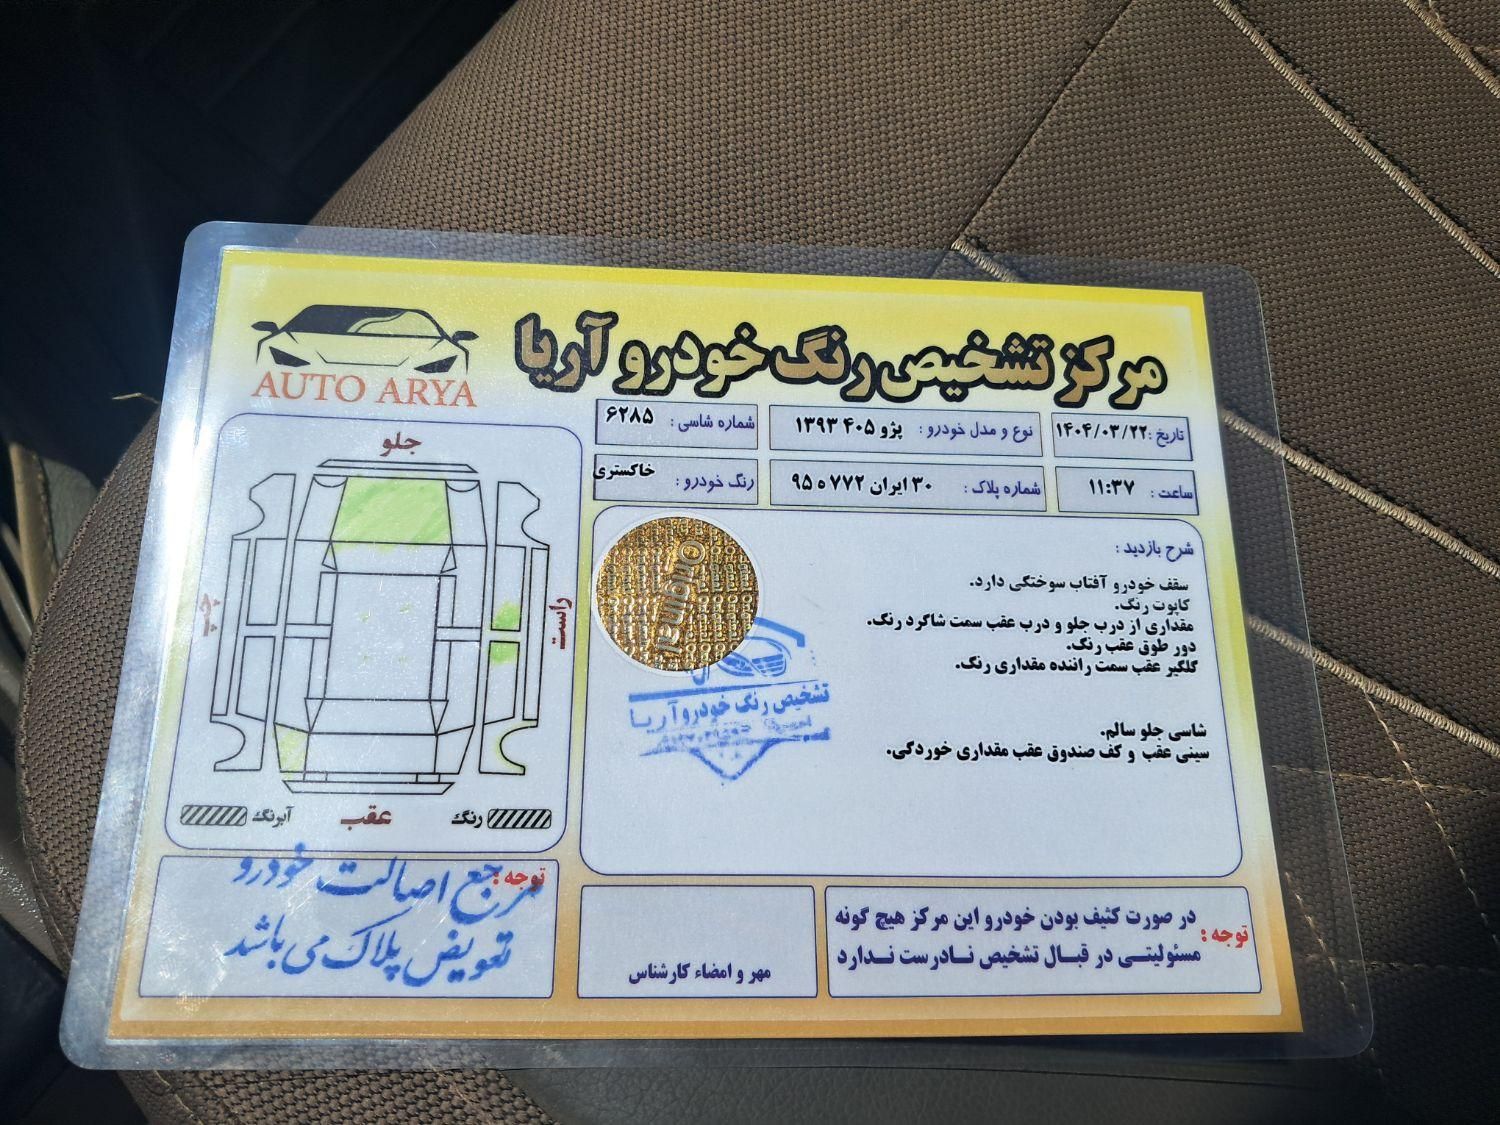 مرکز تشخیص رنگ خودرو آریا
AUTO ARYA
تاریخ: ۱۴۰۴/۰۳/۲۲
نوع و مدل خودرو: پژو ۴۰۵ ۱۳۹۳
شماره شاسی: ۶۲۸۵
ساعت: ۱۱:۳۷
شماره پلاک: ۳۰ ایران ۷۷۲ ه ۹۵
رنگ خودرو: خاکستری
شرح بازدید:
سقف خودرو آفتاب سوختگی دارد.
کاپوت رنگ.
مقداری از درب جلو و درب عقب سمت شاگرد رنگ.
دور طوق عقب رنگ.
گلگیر عقب سمت راننده مقداری رنگ.
شاسی جلو سالم.
سینی عقب و کف صندوق عقب مقداری خوردگی.
Original
تشخیص رنگ خودرو آریا
جلو
چپ
راست
عقب
رنگ
آبرنگ
توجه:
مرجع اصالت خودرو
تعویض پلاک می باشد
مهر و امضاء کارشناس
توجه:
در صورت کثیف بودن خودرو این مرکز هیچ گونه
مسئولیتی در قبال تشخیص نادرست ندارد